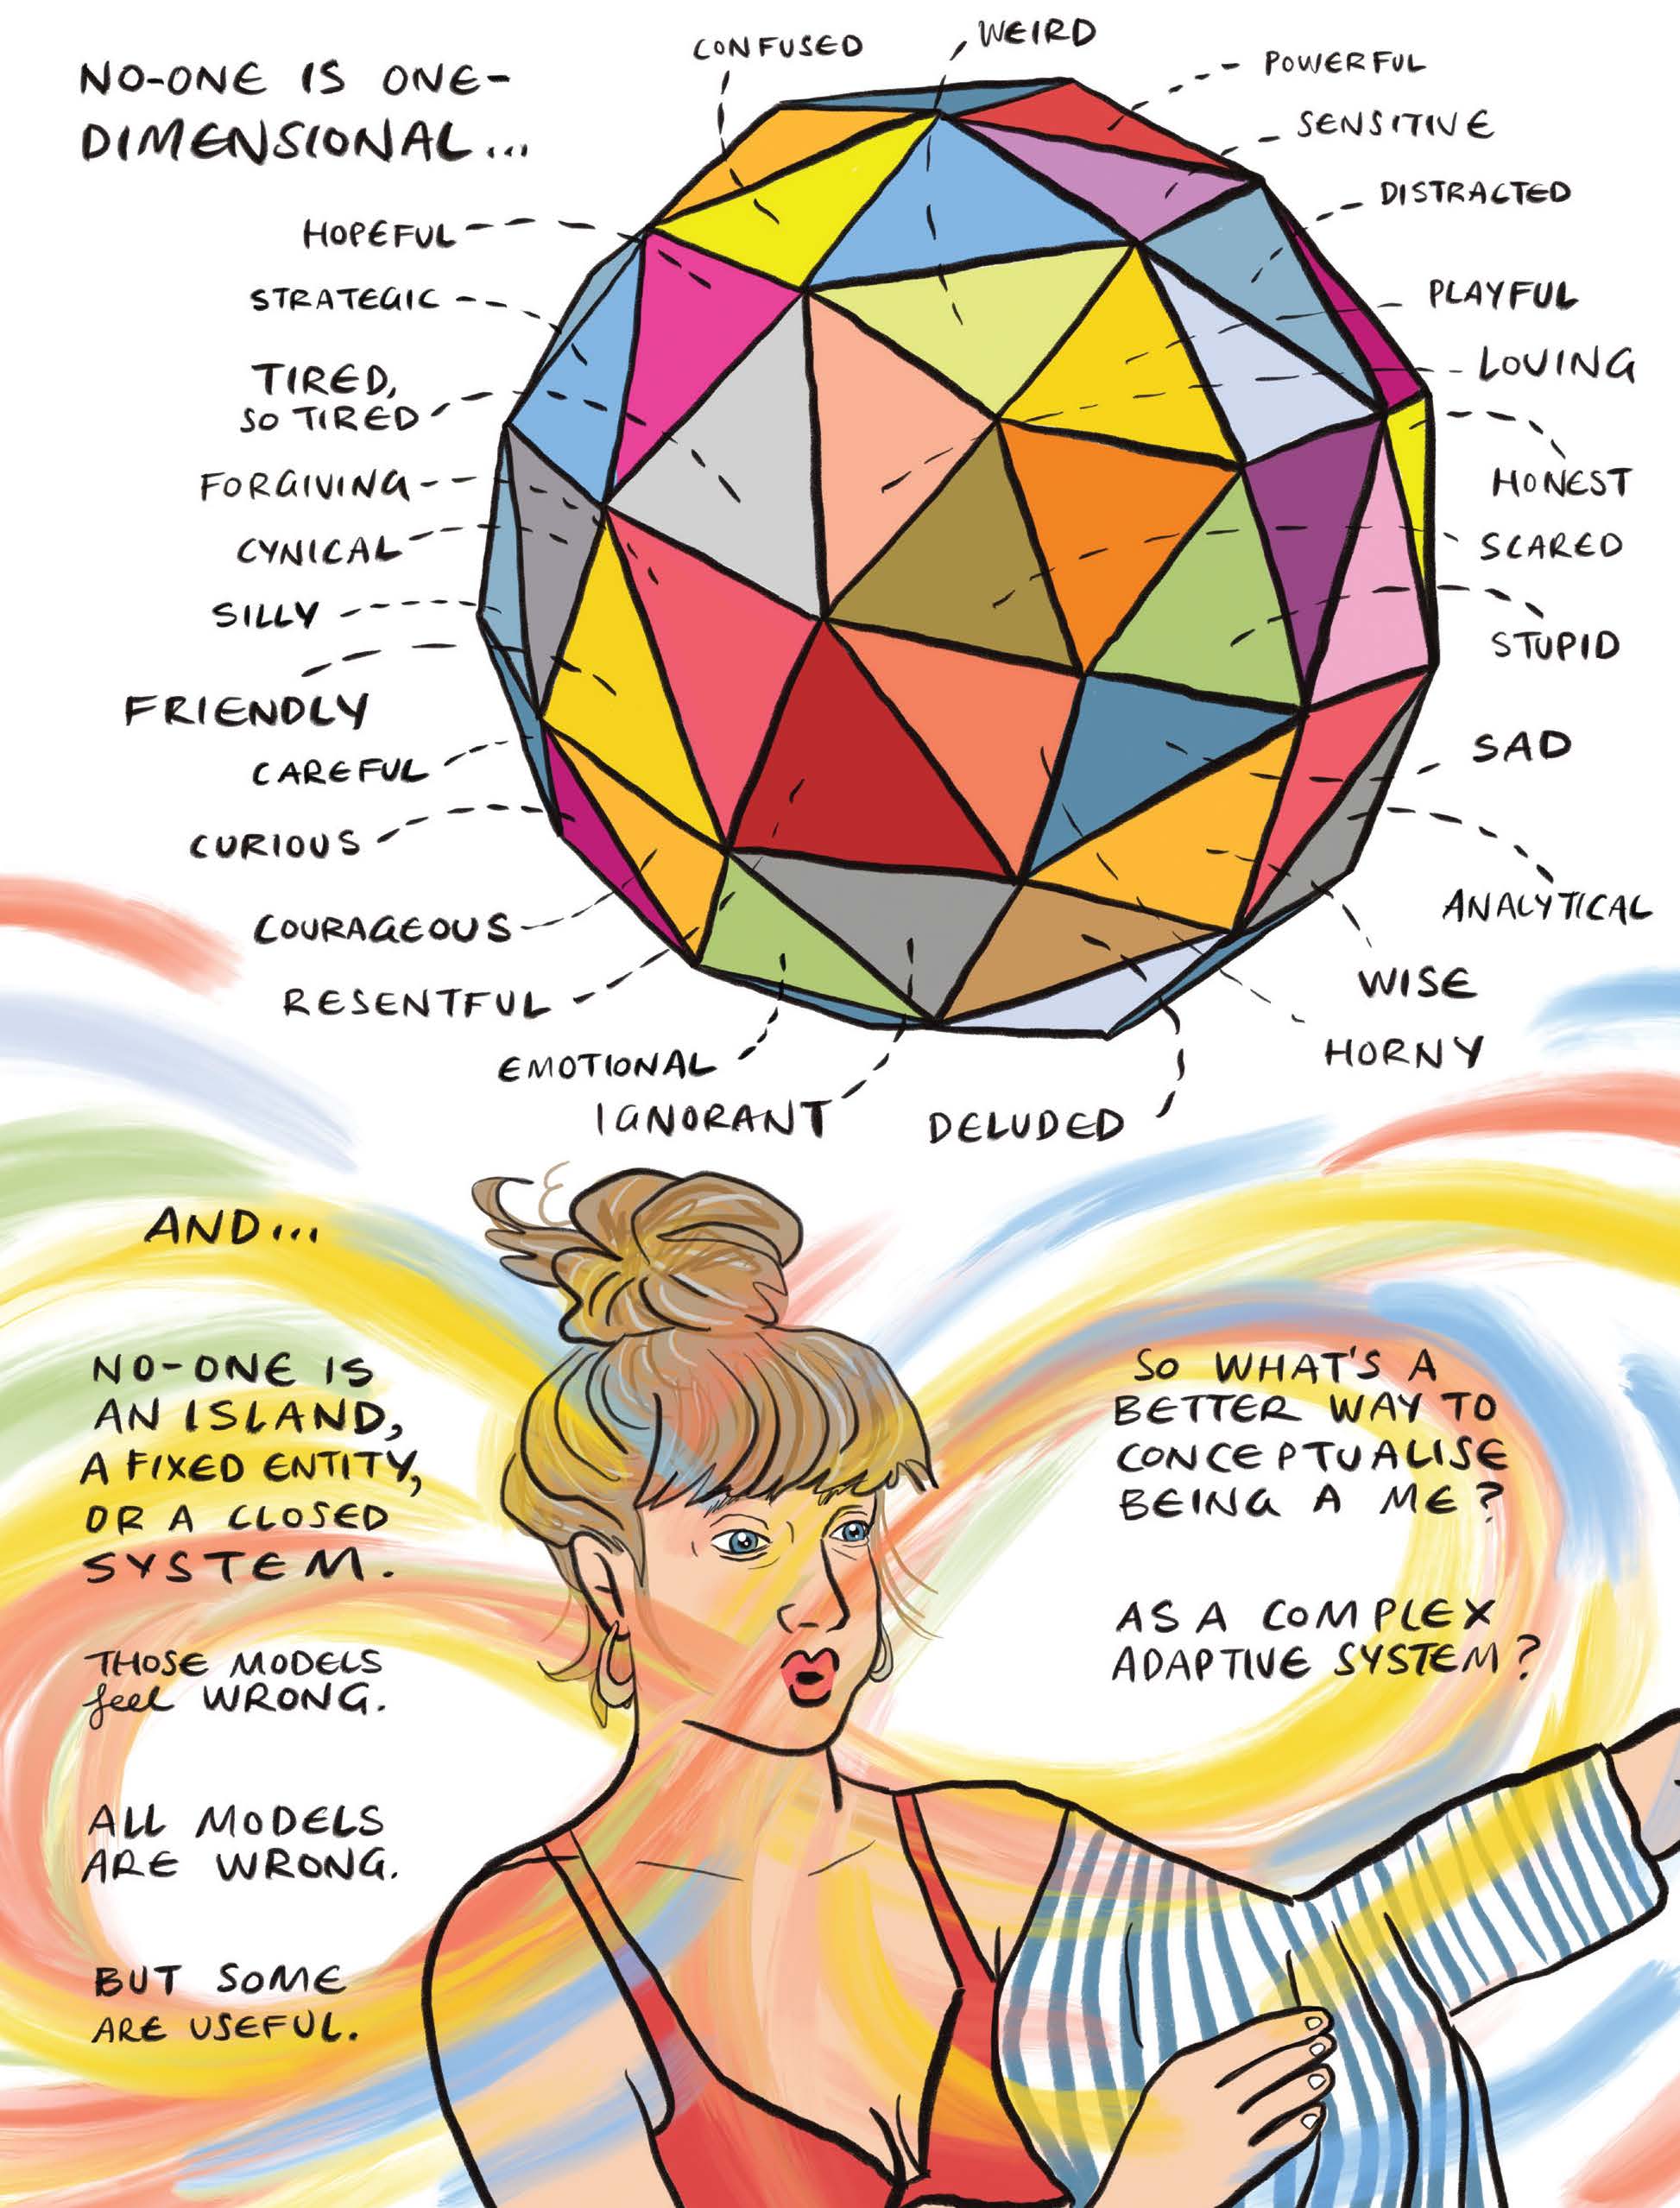 NO-ONE IS ONE-
DIMENSIONAL...
CONFUSED
WEIRD
POWERFUL
SENSITIVE
DISTRACTED
PLAYFUL
LOVING
HONEST
SCARED
STUPID
SAD
ANALYTICAL
WISE
HORNY
DELUDED
IGNORANT
EMOTIONAL
RESENTFUL
COURAGEOUS
CURIOUS
CAREFUL
FRIENDLY
SILLY
CYNICAL
FORGIVING
TIRED,
SO TIRED
STRATEGIC
HOPEFUL
AND...
NO-ONE IS
AN ISLAND,
A FIXED ENTITY,
OR A CLOSED
SYSTEM.
THOSE MODELS
feel WRONG.
ALL MODELS
ARE WRONG.
BUT SOME
ARE USEFUL.
SO WHAT'S A
BETTER WAY TO
CONCEPTUALISE
BEING A ME?
AS A COMPLEX
ADAPTIVE SYSTEM?